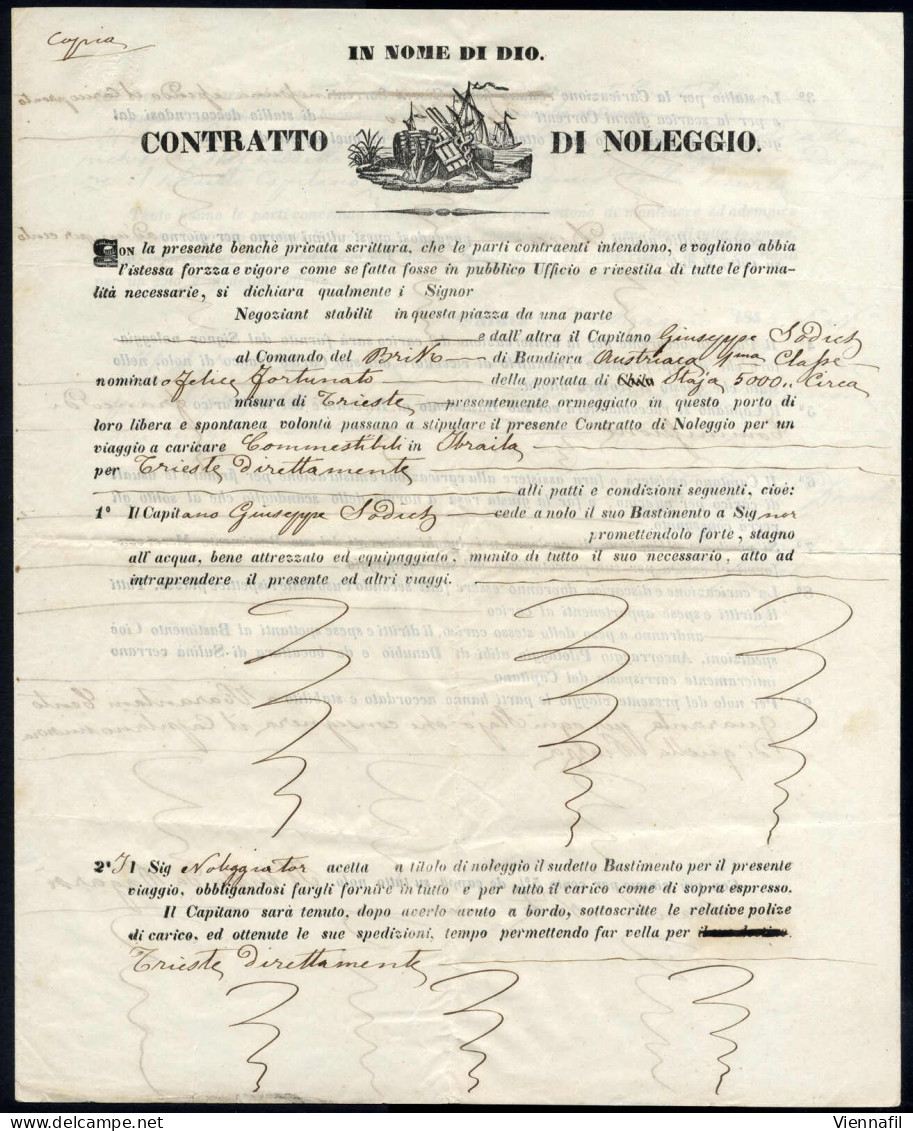 Copia
IN NOME DI DIO.
CONTRATTO DI NOLEGGIO.
CON la presente benchè privata scrittura, che le parti contraenti intendono, e vogliono abbia
l'istessa forzza e vigore come se fatta fosse in pubblico Ufficio e rivestita di tutte le forma-
lità necessarie, si dichiara qualmente i Signor
Negoziant stabilit in questa piazza da una parte
e dall'altra il Capitano Giuseppe
al Comando del Brik di Bandiera Austriaca Classe
nominato Felice Fortunato della portata di Staja 5000,, Circa
misura di Trieste presentemente ormeggiato in questo porto di
loro libera e spontanea volontà passano a stipulare il presente Contratto di Noleggio per un
viaggio a caricare Commestibili in Ibraila
per Trieste direttamente
alli patti e condizioni seguenti, cioè:
1° Il Capitano Giuseppe cede a nolo il suo Bastimento a Signor
promettendolo forte, stagno
all'acqua, bene attrezzato ed equipaggiato, munito di tutto il suo necessario, atto ad
intraprendere il presente ed altri viaggi.
2° Il Sig Noleggiator acetta a titolo di noleggio il sudetto Bastimento per il presente
viaggio, obbligandosi fargli fornire in tutto e per tutto il carico come di sopra espresso.
Il Capitano sarà tenuto, dopo averlo avuto a bordo, sottoscritte le relative polize
di carico, ed ottenute le sue spedizioni, tempo permettendo far vella per
Trieste direttamente
Viennafil